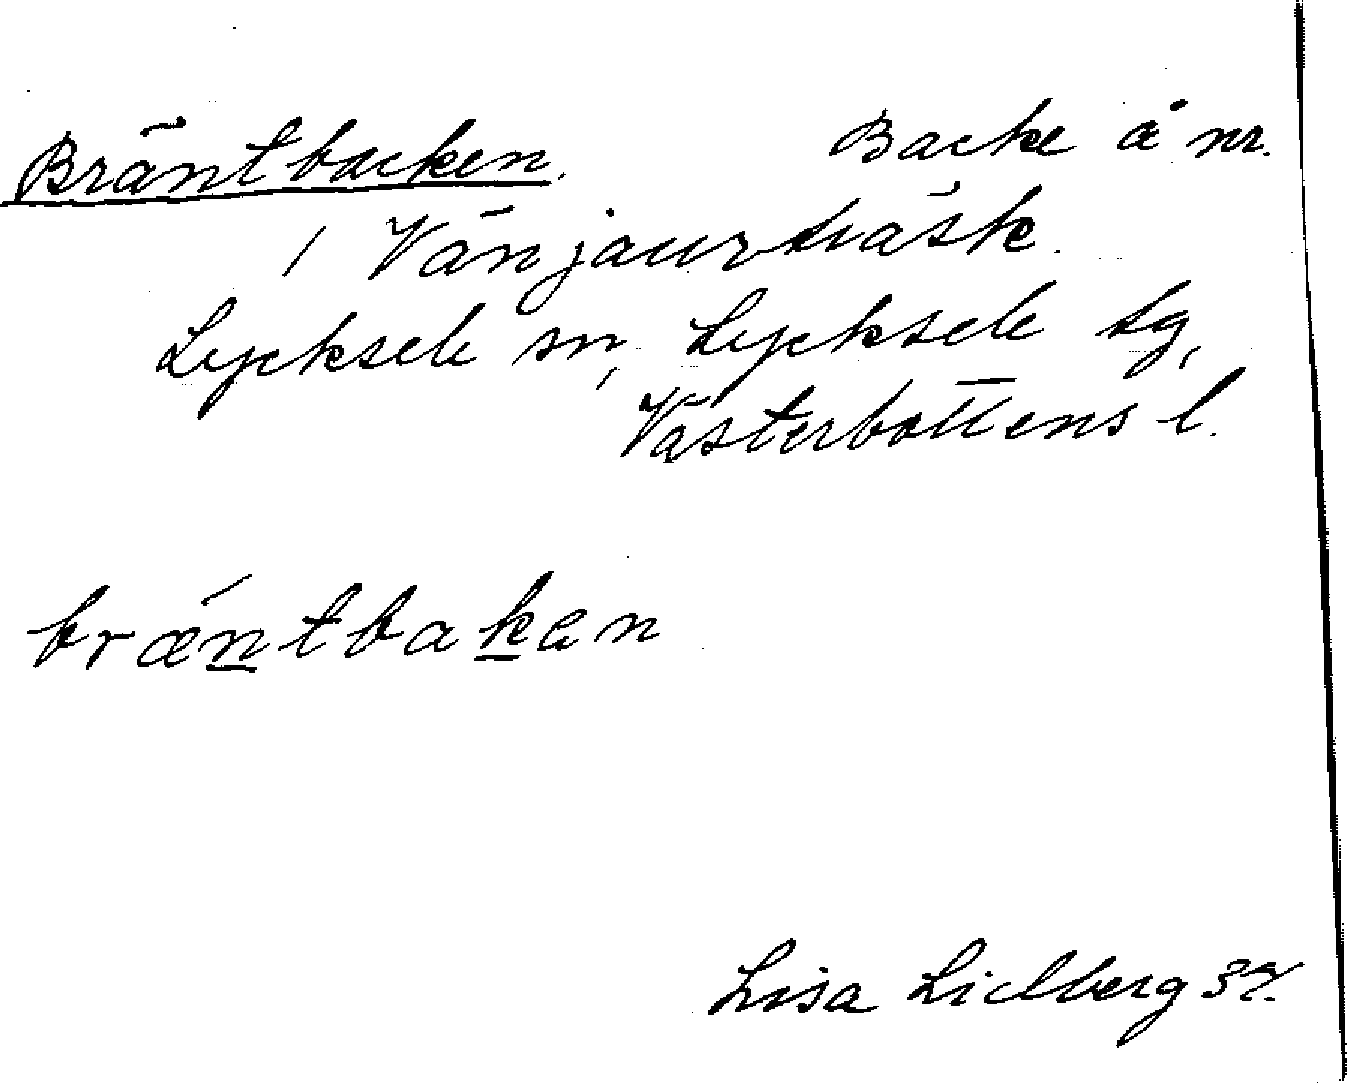 Bräntbacken. Backe å nr.
1 Vänjaurträsk.
Lycksele sn, Lycksele tg,
Västerbottens l.
bræntbakan
Lisa Lidberg 37.